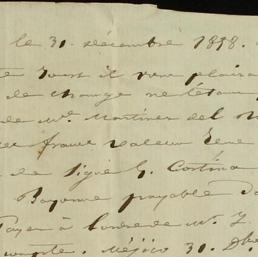 le 31. décembre 1898.
Jours il vous plaira
de change ne l'étant
de Mr. Martinez del
franc valeur
de Signé G. Cortina
Bayonne payable
Payez à l'ordre de Mr. J
compte. Méjico 31. Dbre